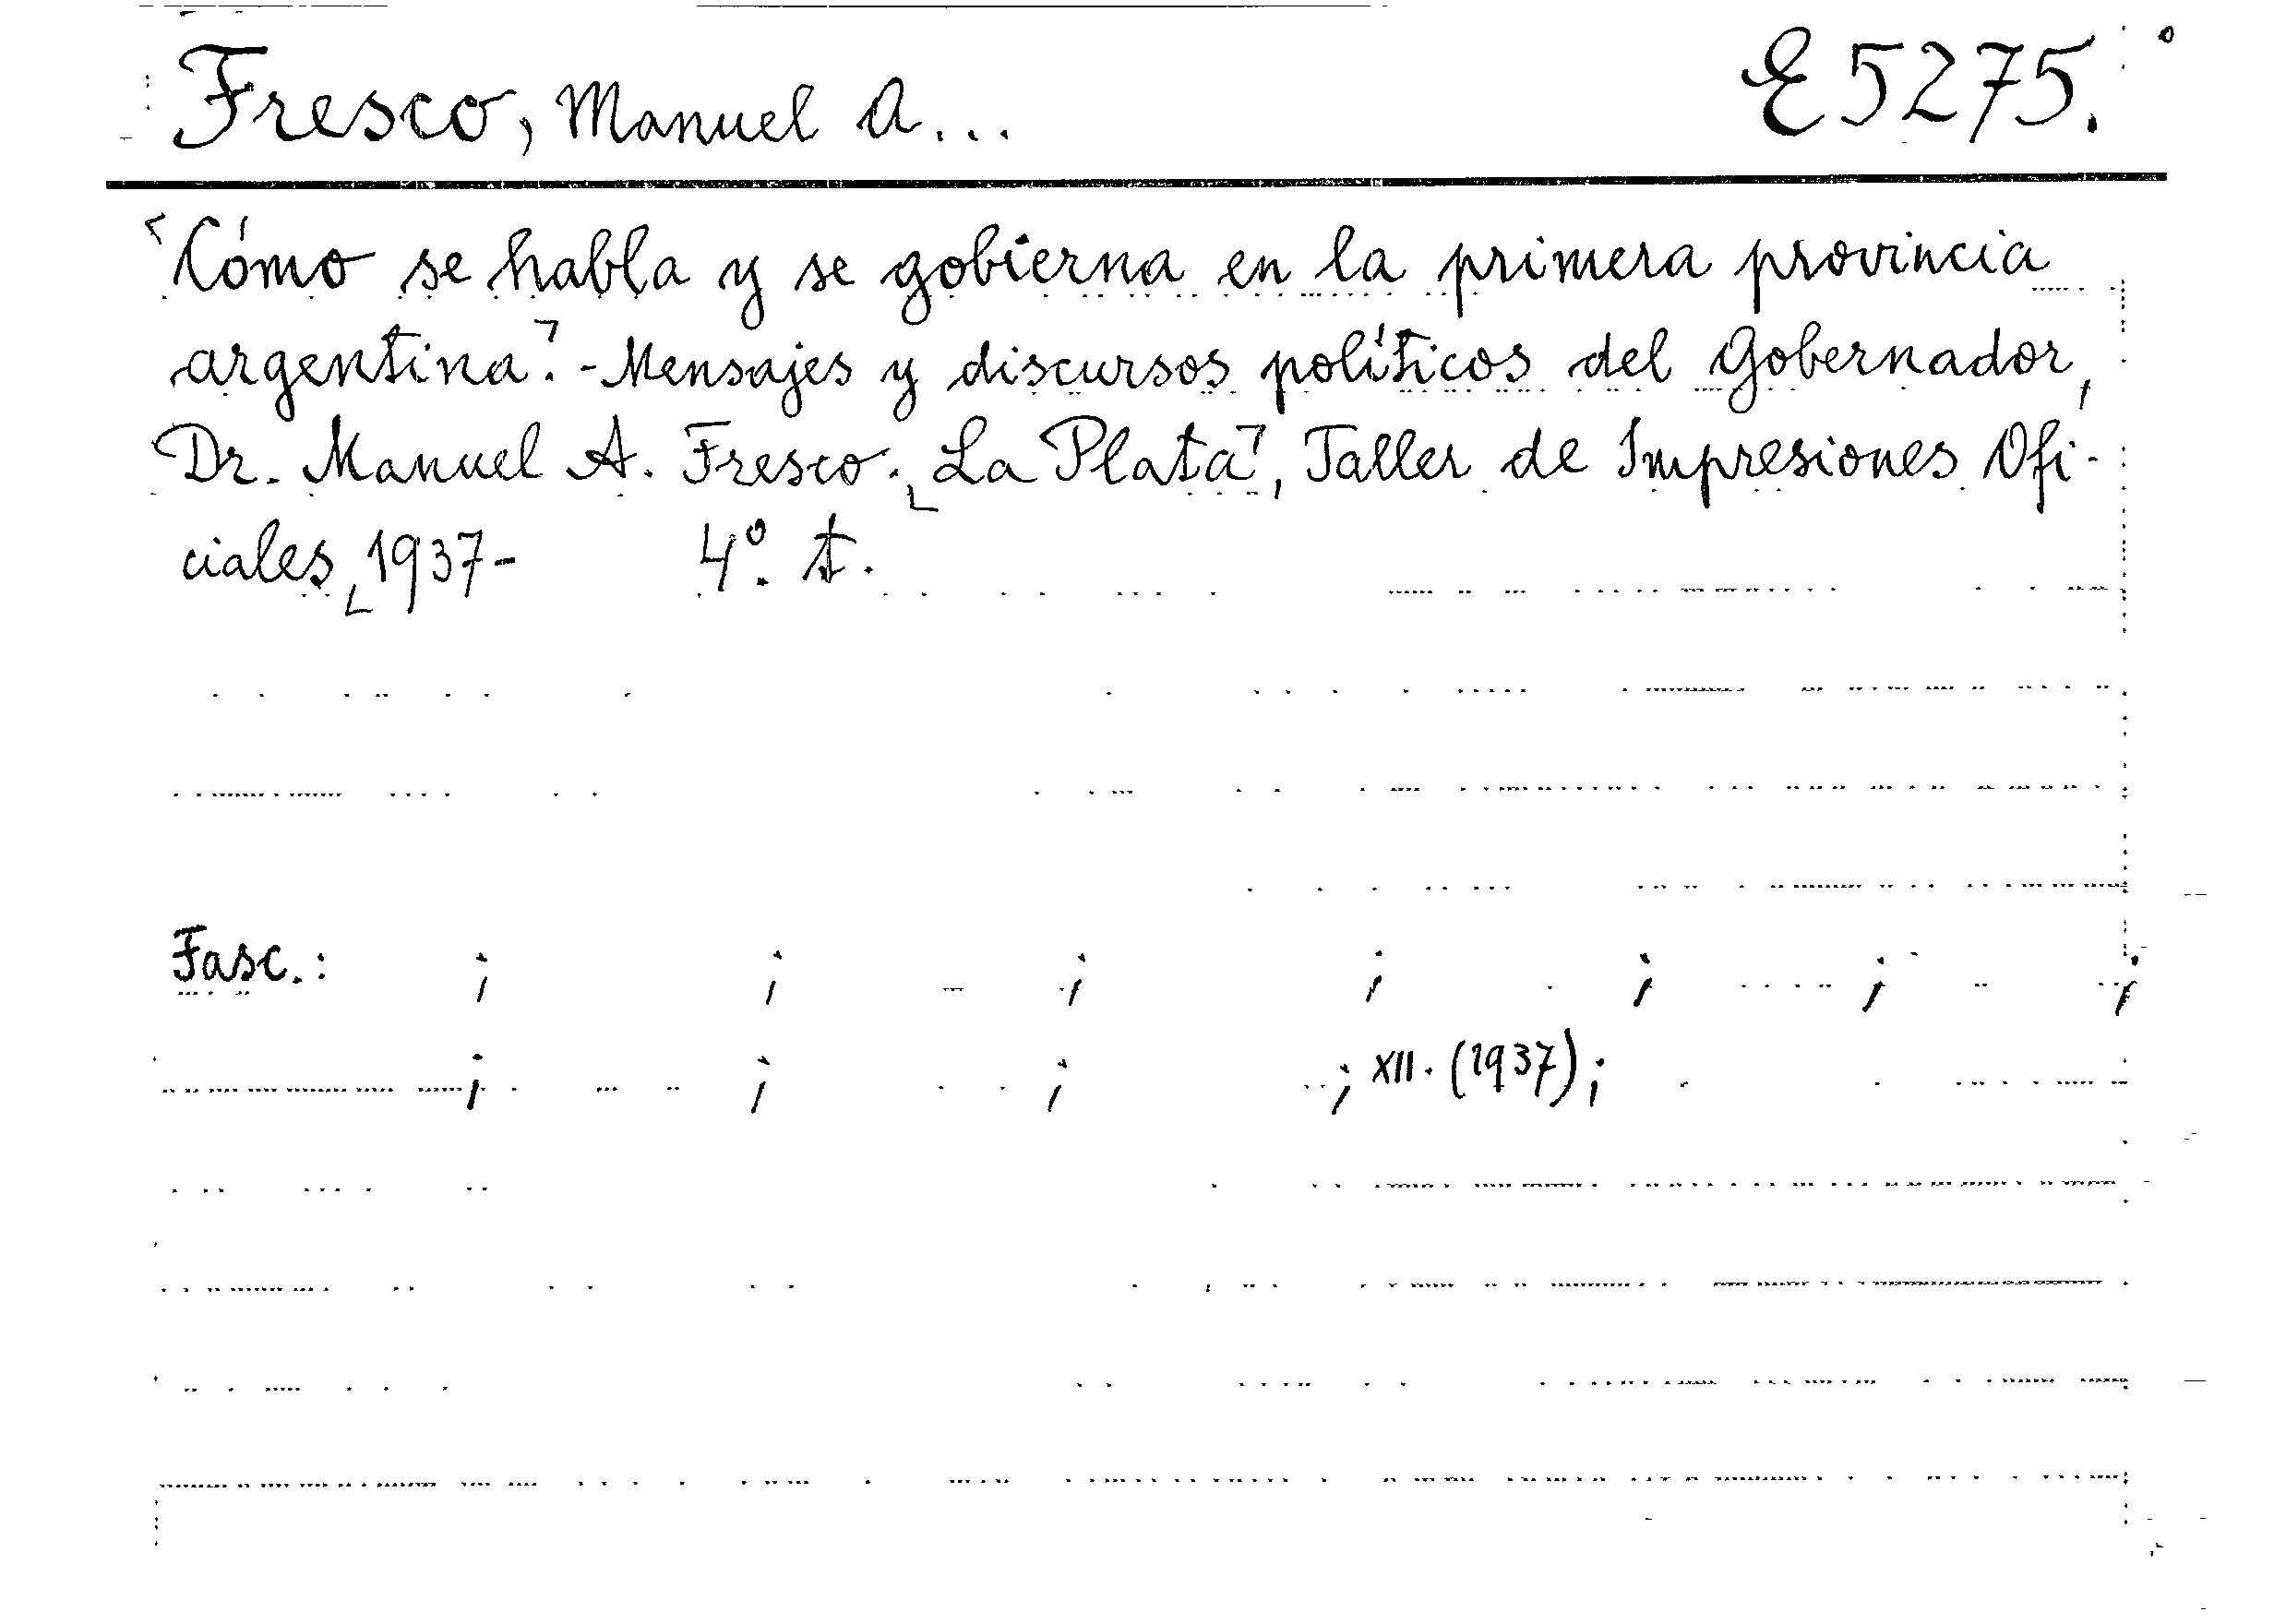 Fresco, Manuel A... E 5275.
⌜Cómo se habla y se gobierna en la primera provincia
argentina.⌝ - Mensajes y discursos políticos del Gobernador,
Dr. Manuel A. Fresco. ⌞La Plata⌝, Taller de Impresiones Ofi-
ciales, ⌞1937- 4º. t.
Fasc.: ; ; ; ; ; ; ;
; ; ; ; XII. (1937);